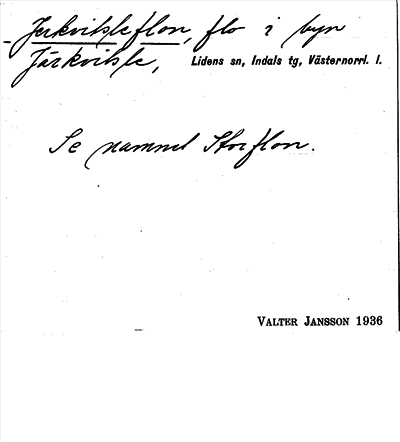 Jerkvitsleflon, flo i byn
Järkvitsle, Lidens sn, Indals tg, Västernorrl. l.
Se namnet Storflon.
VALTER JANSSON 1936